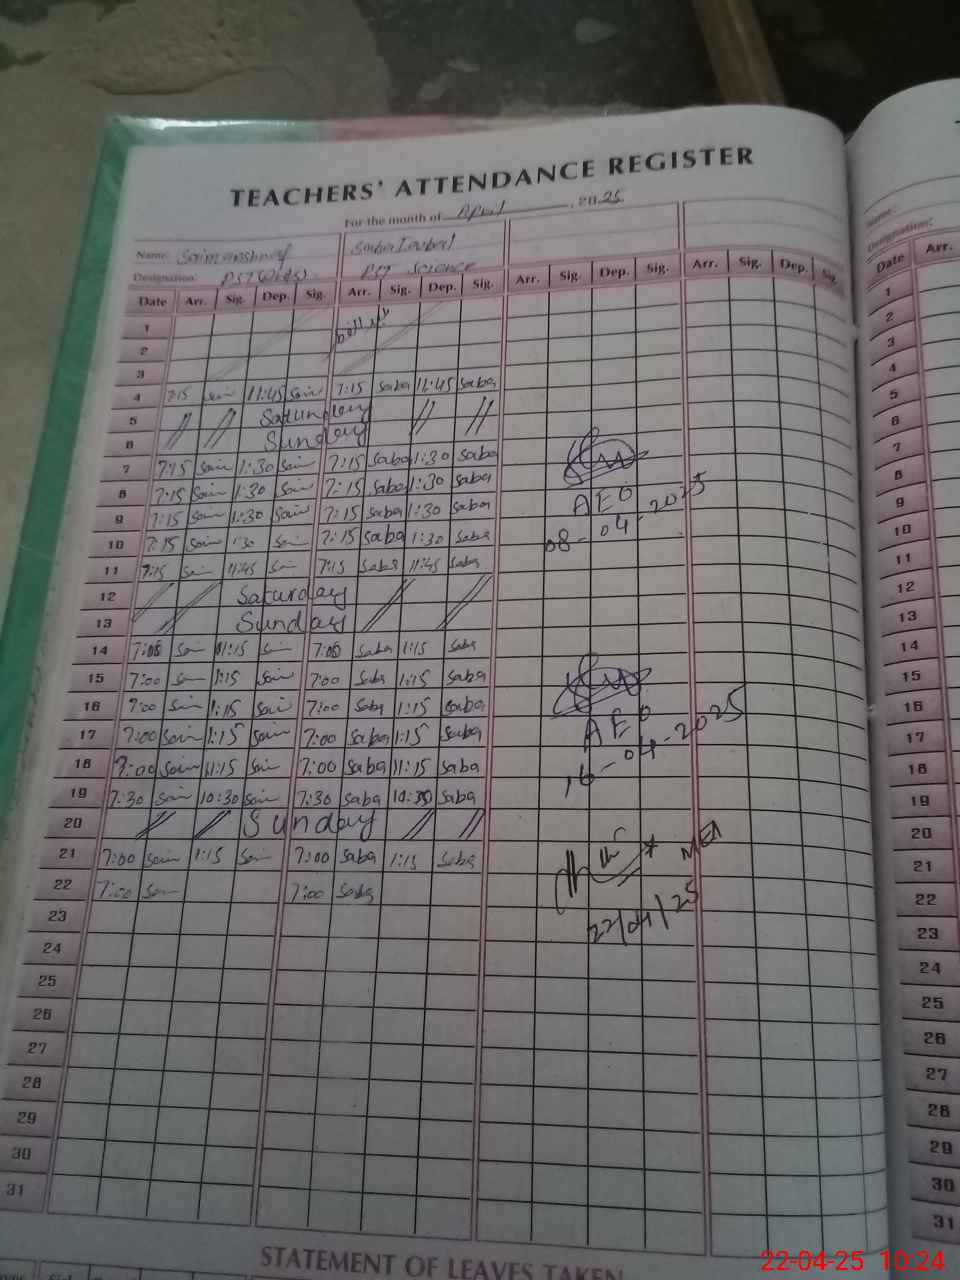 TEACHERS' ATTENDANCE REGISTER
For the month of April, 2025
Name: Saba
Designation: PST PST Science
Date Arr. Sig. Dep. Sig. Arr. Sig. Dep. Sig. Arr. Sig. Dep. Sig. Arr. Sig. Dep. Sig.
1
2
3
4 7:15 Saim 11:45 Saim 7:15 Saba 11:45 Saba
5 Saturday
6 Sunday
7 7:15 Saim 1:30 Saim 7:15 Saba 1:30 Saba
8 7:15 Saim 1:30 Saim 7:15 Saba 1:30 Saba
AEO
9 7:15 Saim 1:30 Saim 7:15 Saba 1:30 Saba
08-04-2025
10 7:15 Saim 1:30 Saim 7:15 Saba 1:30 Saba
11 7:15 Saim 11:45 Saim 7:15 Saba 11:45 Saba
12 Saturday
13 Sunday
14 7:00 Saim 1:15 Saim 7:00 Saba 1:15 Saba
15 7:00 Saim 1:15 Saim 7:00 Saba 1:15 Saba
16 7:00 Saim 1:15 Saim 7:00 Saba 1:15 Saba
AEO
17 7:00 Saim 1:15 Saim 7:00 Saba 1:15 Saba
16-04-2025
18 7:00 Saim 11:15 Saim 7:00 Saba 11:15 Saba
19 7:30 Saim 10:30 Saim 7:30 Saba 10:30 Saba
20 Sunday
21 7:00 Saim 1:15 Saim 7:00 Saba 1:15 Saba
MEA
22 7:00 Saim 7:00 Saba
22/04/25
23
24
25
26
27
28
29
30
31
STATEMENT OF LEAVES TAKEN
Name:
Designation:
Date Arr.
1
2
3
4
5
6
7
8
9
10
11
12
13
14
15
16
17
18
19
20
21
22
23
24
25
26
27
28
29
30
31
22-04-25 10:24